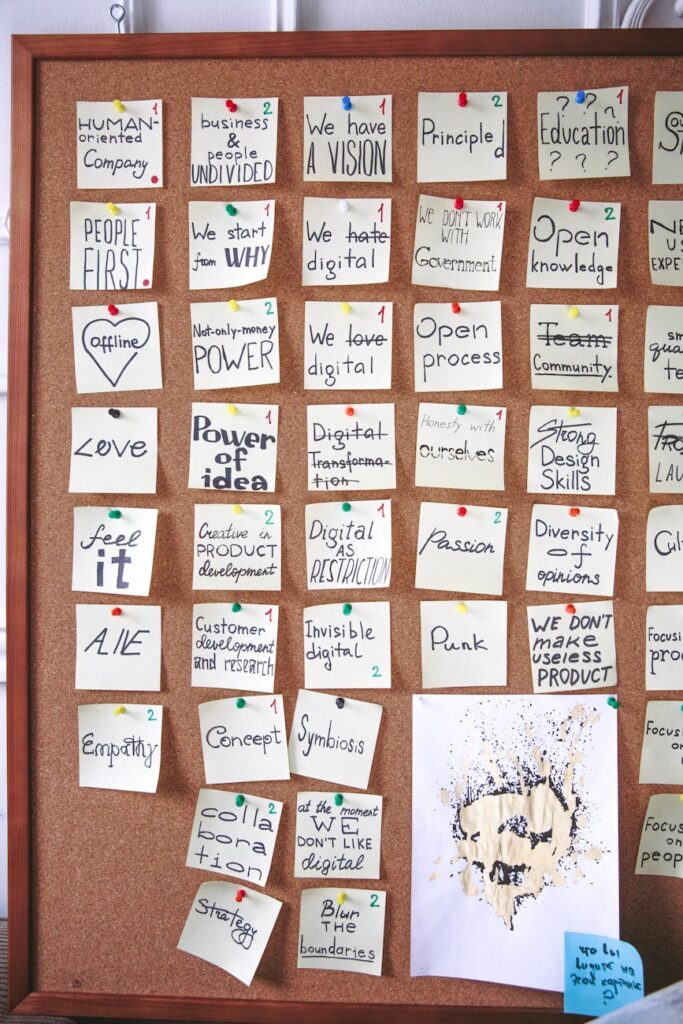 HUMAN-
oriented
Company
1
business
&
people
UNDIVIDED
2
We have
A VISION
1
Principled
2
? ? ?
Education
? ? ?
1
PEOPLE
FIRST
1
We start
from WHY
1
We hate
digital
1
WE DON'T WORK
WITH
Government
1
Open
knowledge
2
NE
U
EXPER
offline
Not-only-money
POWER
2
We love
digital
1
Open
process
Team
Community
1
sm
qua
te
Love
Power
of
idea
1
Digital
Transforma-
tion
Honesty with
ourselves
1
Strong
Design
Skills
LAU
feel
it
2
Creative in
PRODUCT
development
2
Digital
AS
RESTRICTION
1
Passion
2
Diversity
of
opinions
Cul
ALIE
Customer
development
and research
1
Invisible
digital
2
Punk
WE DON'T
make
useless
PRODUCT
Focusi
pro
Empathy
2
Concept
1
Symbiosis
Focus
on
colla
bora
tion
2
at the moment
WE
DON'T LIKE
digital
2
Focus
on
people
Strategy
Blur
THE
boundaries
2
что вы
видите на
этой картинке
?